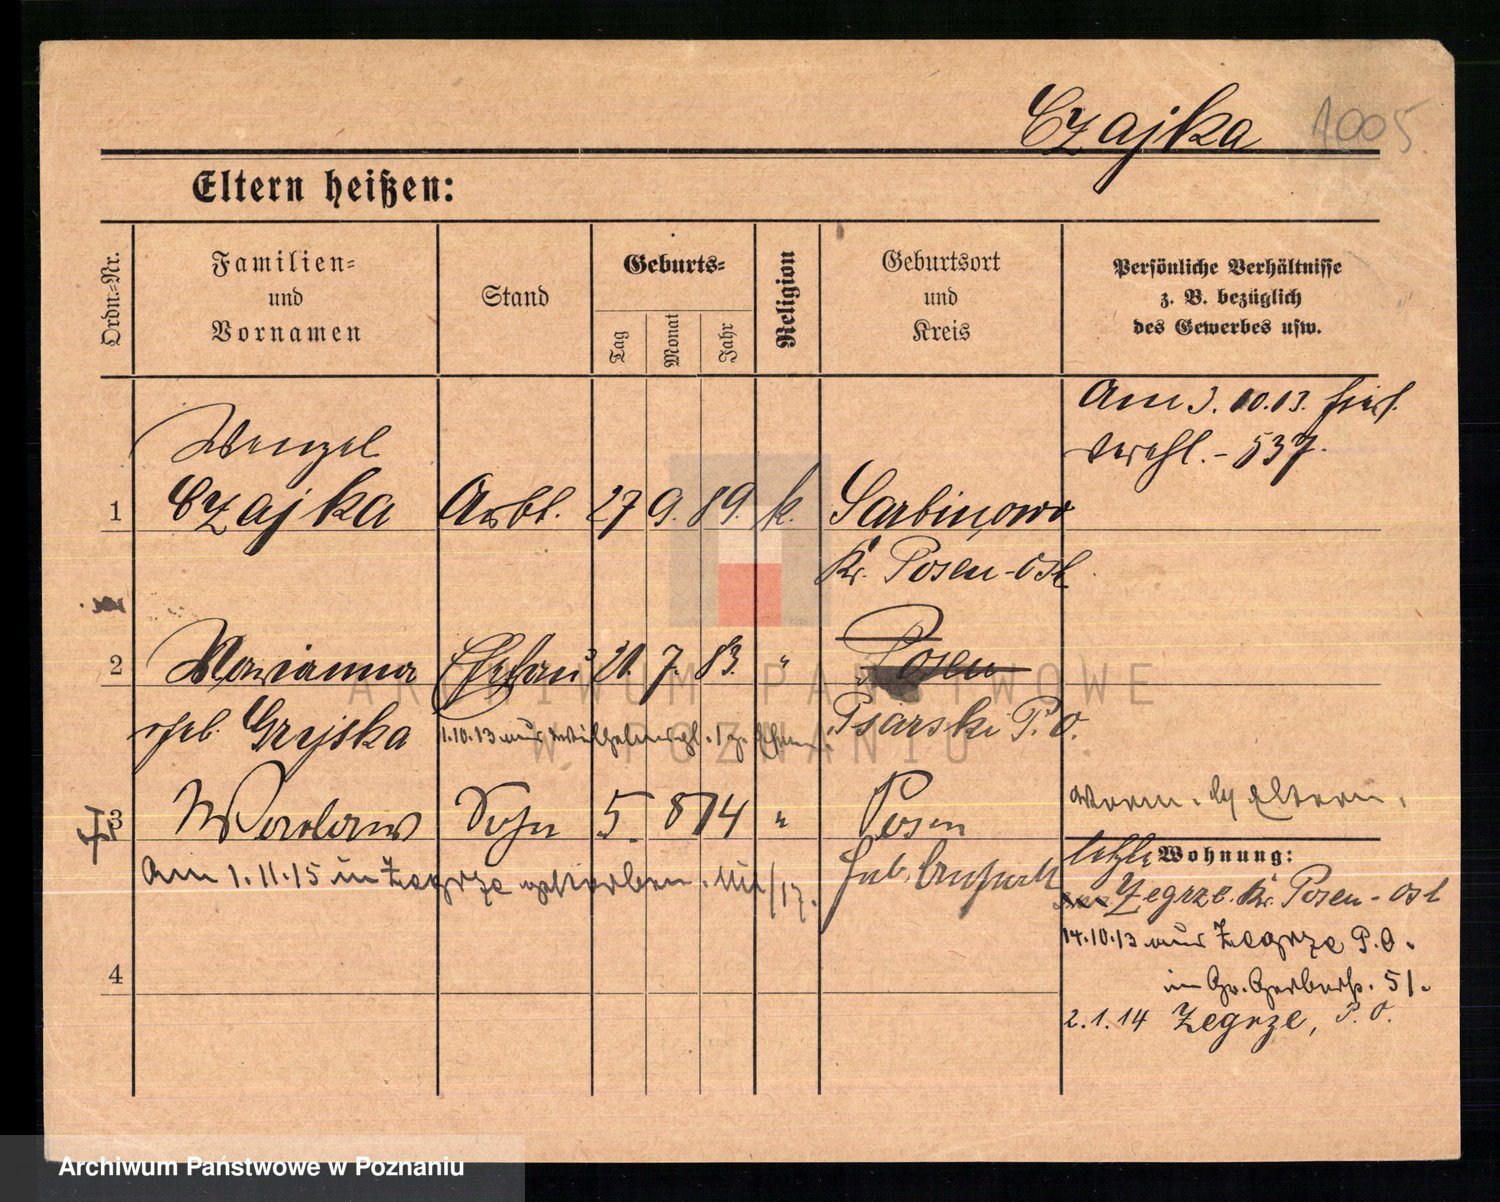 Czajka 1005
Eltern heißen:
Ordn.-Nr.
Familien-
und
Vornamen
Stand
Geburts-
Tag
Monat
Jahr
Religion
Geburtsort
und
Kreis
Persönliche Verhältnisse
z. B. bezüglich
des Gewerbes usw.
Am 3.10.13. hier
verehl. - 537.
Wenzel
1 Czajka Arbt. 27 9. 89. k. Sarbinowo
Kr. Posen-Ost
2 Marianna Ehefrau 21. 7. 83. " Posen
geb. Grzjska Psarski P. O.
1.10.13 aus
3 Waclaw Sohn 5. 8 14 " Posen
Eltern.
Am 1.11.15 in Zegrze gestorben.
letzte Wohnung:
Zegrze. Kr. Posen-Ost
14.10.13 aus Zegrze P.O.
in Gr. Gerberstr. 51.
4
2.1.14 Zegrze, P. O.
ARCHIWUM PAŃSTWOWE
W POZNANIU
Archiwum Państwowe w Poznaniu